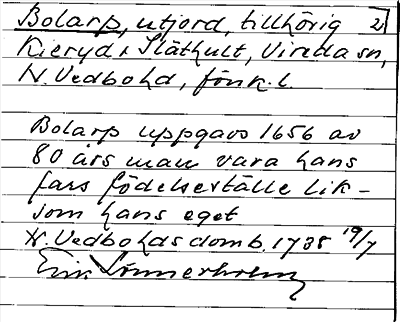 Bolarp, utjord, tillhörig 2)
Kieryd i Släthult, Vireda sn,
N. Vedbohd, Jönk. l.
Bolarp uppgavs 1656 av
80 års man vara hans
fars födelseställe lik-
som hans eget
N. Vedbohds domb. 1738 19/7
Erik Lönnerholm